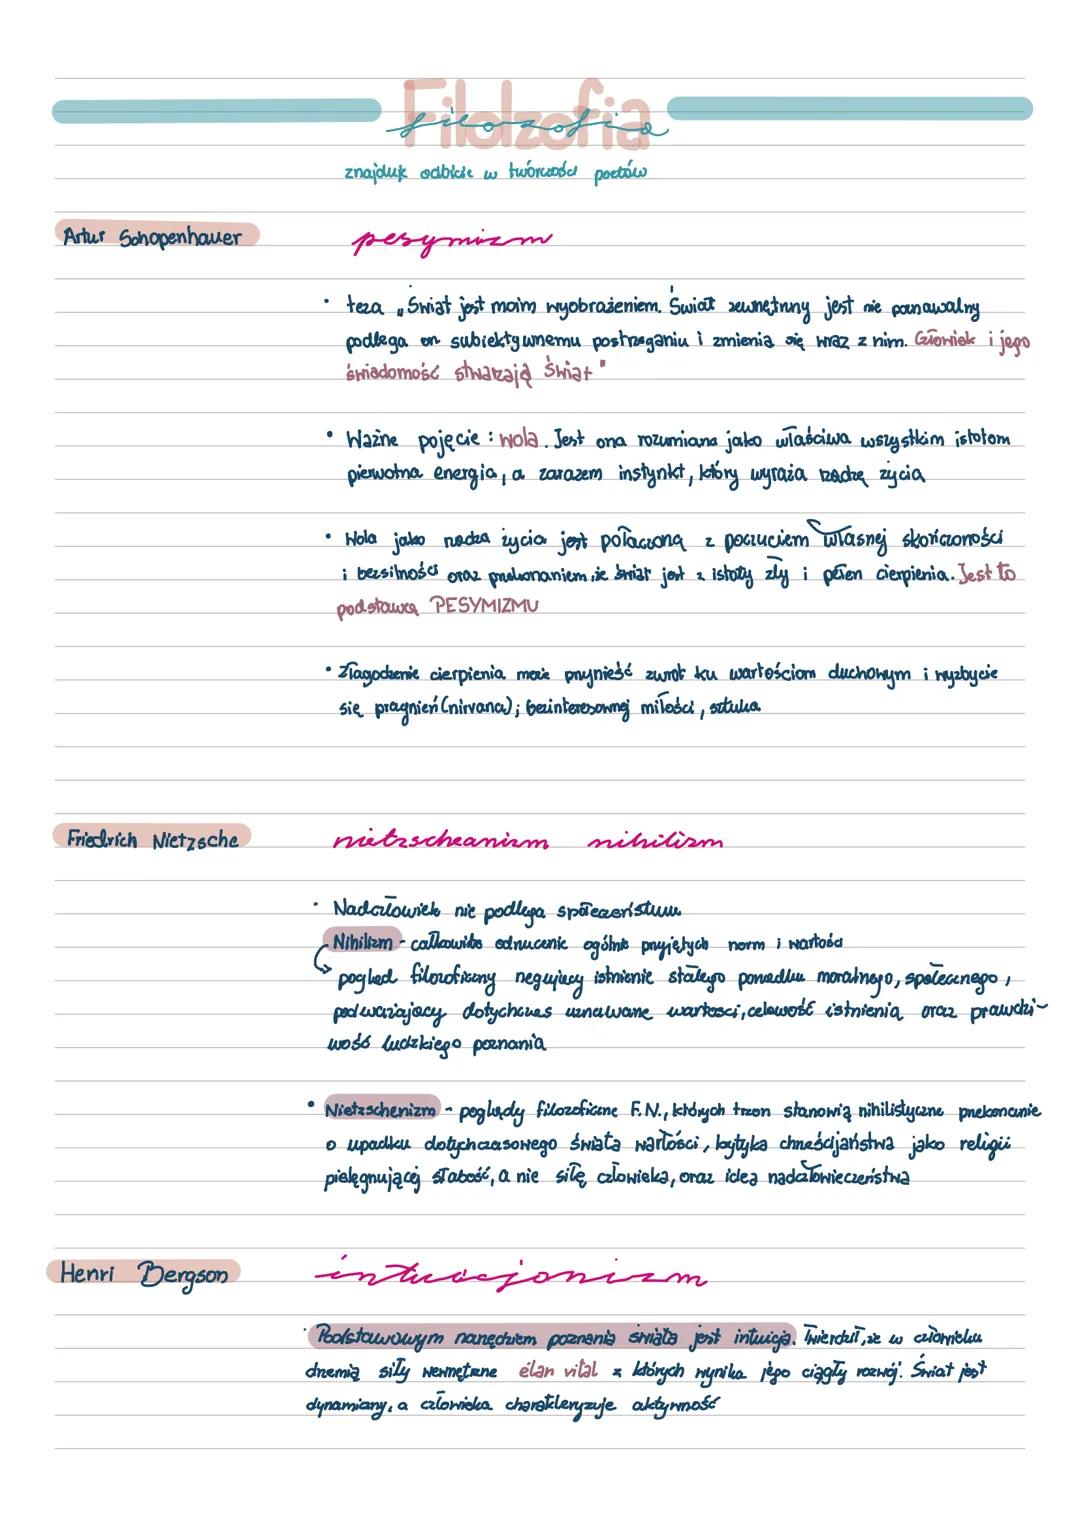 Filozofia
filozofia
znajduje odbicie w twórczości poetów
Artur Schopenhauer
pesymizm
• teza „Świat jest moim wyobrażeniem. Świat zewnętrzny jest nie poznawalny
podlega on subiektywnemu postrzeganiu i zmienia się wraz z nim. Człowiek i jego
świadomość stwarzają świat"
• Ważne pojęcie: wola. Jest ona rozumiana jako właściwa wszystkim istotom
pierwotna energia, a zarazem instynkt, który wyraża żądzę życia
• Wola jako żądza życia jest połączona z poczuciem własnej skończoności
i bezsilności oraz przekonaniem, że świat jest z istoty zły i pełen cierpienia. Jest to
podstawą PESYMIZMU
• Złagodzenie cierpienia może przynieść zwrot ku wartościom duchowym i wyzbycie
się pragnień (nirvana); bezinteresownej miłości, sztuka
Friedrich Nietzsche
nietzscheanizm nihilizm
• Nadczłowiek nie podlega społeczeństwu
Nihilizm - całkowite odrzucenie ogólnie przyjętych norm i wartości
pogląd filozoficzny negujący istnienie stałego porządku moralnego, społecznego,
podważający dotychczas uznawane wartości, celowość istnienia oraz prawdzi-
wość ludzkiego poznania
• Nietzschenizm - poglądy filozoficzne F.N., których trzon stanowią nihilistyczne przekonanie
o upadku dotychczasowego świata wartości, krytyka chrześcijaństwa jako religii
pielęgnującej słabość, a nie siłę człowieka, oraz idea nadczłowieczeństwa
Henri Bergson
intuicjonizm
• Podstawowym narzędziem poznania świata jest intuicja. Twierdził, że w człowieku
drzemią siły wewnętrzne élan vital z których wynika jego ciągły rozwój. Świat jest
dynamiczny, a człowieka charakteryzuje aktywność